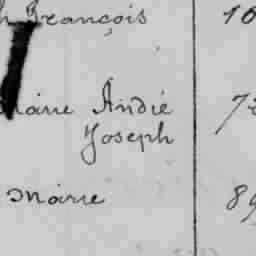 François 10
Marie André 7
Joseph
Marie 89